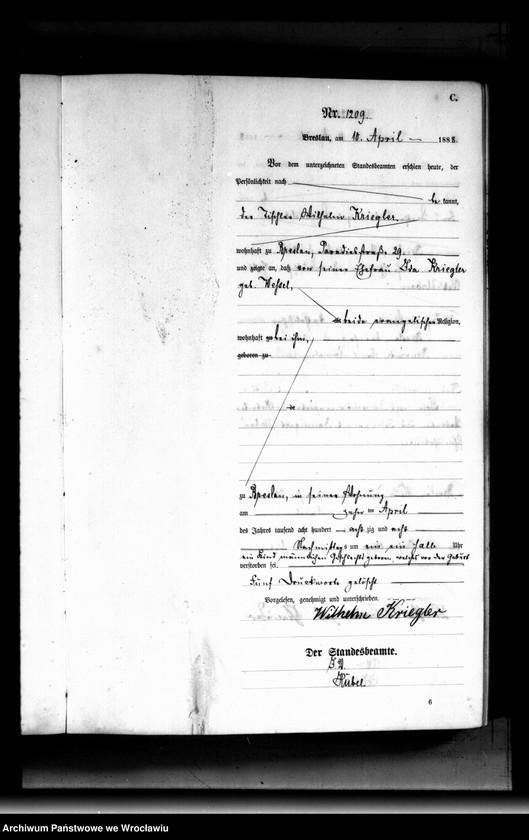 C.
Nr. 1209.
Breslau, am 10. April 1888.
Vor dem unterzeichneten Standesbeamten erschien heute, der
Persönlichkeit nach
be kannt,
der Tischler Wilhelm Kriegler.
wohnhaft zu Breslau, Paradiesstraße 29.
und zeigte an, daß von seiner Ehefrau Ida Kriegler
geb. Wessel,
beide evangelischer Religion,
wohnhaft bei ihm,
geboren zu
zu Breslau, in seiner Wohnung
am zehn ten April
des Jahres tausend acht hundert acht zig und acht
Nachmittags um ein ein halb Uhr
ein Kind männlichen Geschlechts geboren, welches vor der Geburt
verstorben sei.
Fünf Druckworte gelöscht
Vorgelesen, genehmigt und unterschrieben.
Wilhelm Kriegler
Der Standesbeamte.
Hübel.
6
Archiwum Państwowe we Wrocławiu